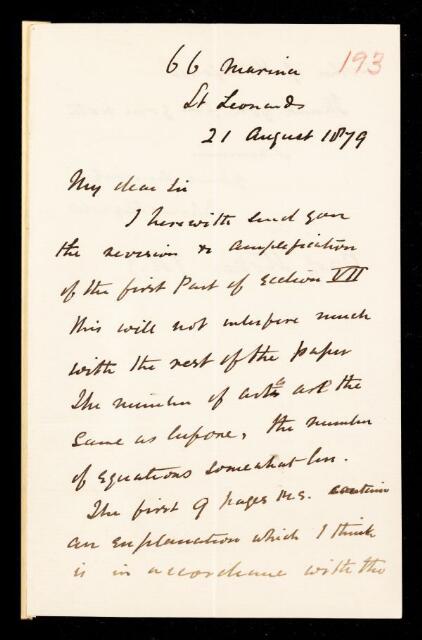 66 Marina 193
St Leonards
21 August 1879
My dear Sir
I herewith send you
the revision & amplification
of the first Part of Section VII
This will not interfere much
with the rest of the paper
The number of are the
same as before, the number
of Equations somewhat less.
The first 9 pages M.S. contain
an explanation which I think
is in accordance with the